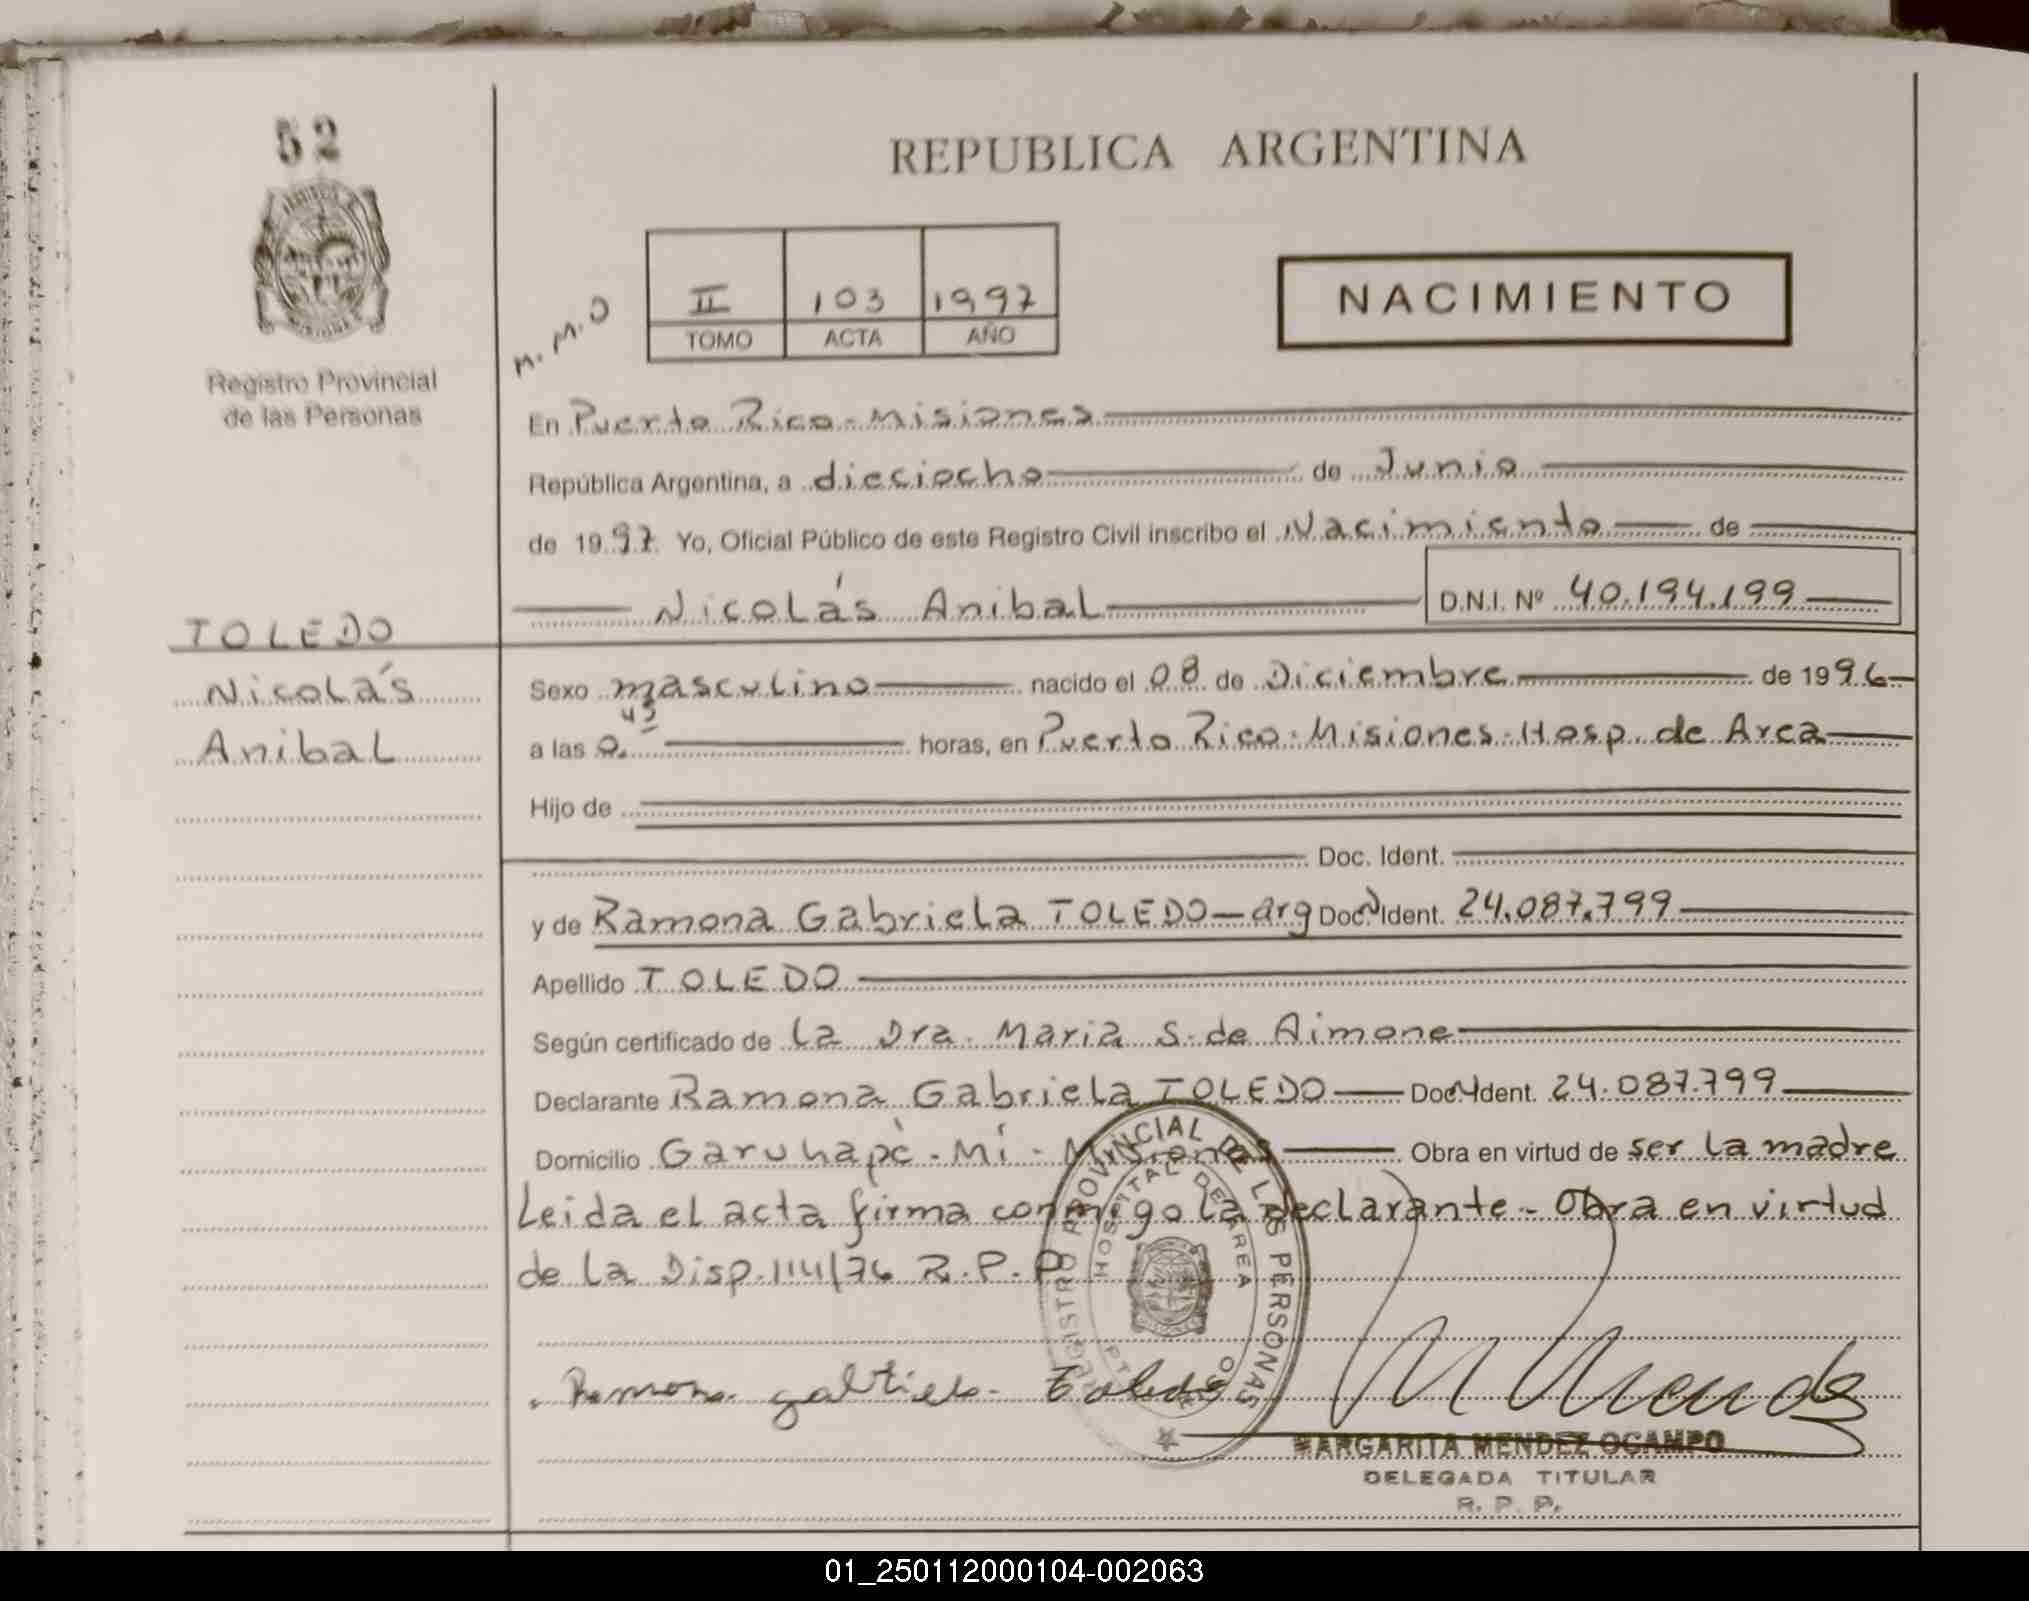 52
REPUBLICA ARGENTINA
M.M.O
II 103 1997
TOMO ACTA AÑO
NACIMIENTO
Registro Provincial
de las Personas
En Puerto Rico - Misiones
República Argentina, a dieciocho de Junio
de 1997. Yo, Oficial Público de este Registro Civil inscribo el Nacimiento de
Nicolás Anibal D.N.I. Nº 40.194.199
TOLEDO
Nicolás
Anibal
Sexo masculino nacido el 08 de Diciembre de 1996
a las 0.45 horas, en Puerto Rico - Misiones - Hosp. de Area
Hijo de
Doc. Ident.
y de Ramona Gabriela TOLEDO - arg Doc. Ident. 24.087.799
Apellido TOLEDO
Según certificado de La Dra. Maria S. de Aimone
Declarante Ramona Gabriela TOLEDO Doc. Ident. 24.087.799
Domicilio Garuhapé - Mí - Misiones Obra en virtud de ser la madre
Leida el acta firma conmigo la declarante - Obra en virtud
de la Disp. 114/76 R.P.P
REGISTRO PROVINCIAL DE LAS PERSONAS
HOSPITAL DE AREA
Ramona gabriela Toledo
MARGARITA MENDEZ OCAMPO
DELEGADA TITULAR
R. P. P.
01_250112000104-002063